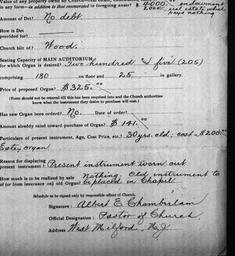 Value of any property owned by Church other than
in any form in addition to that enumerated in foregoing answer? $4000.00 endowment
2,000.00 real estate which
pays nothing
Amount of Debt No debt.
How is Debt
provided for
Church built of? Wood.
Seating Capacity of MAIN AUDITORIUM
(for which Organ is desired) Two hundred & five (205)
comprising 180 on floor and 25 in gallery.
Price of proposed Organ? $325.00
(Form should not be returned till this has been inquired into and the Church authorities
know what the instrument they desire to purchase will cost.)
Has new Organ been ordered? No. Date of order?
Amount already raised toward purchase of Organ? $141.00
Particulars of present instrument, Age, Cost Price, etc.? 30 yrs. old; cost $200.00
Estey organ
Reason for displacing
present instrument? Present instrument worn out
How much is to be realized by sale Nothing. Old instrument to
(or from insurance on) old Organ? be placed in Chapel.
Schedule to be signed only by responsible officer of Church.
Signature: Albert E. Chamberlain
Official Designation: Pastor of Church.
Address West Milford, N.J.